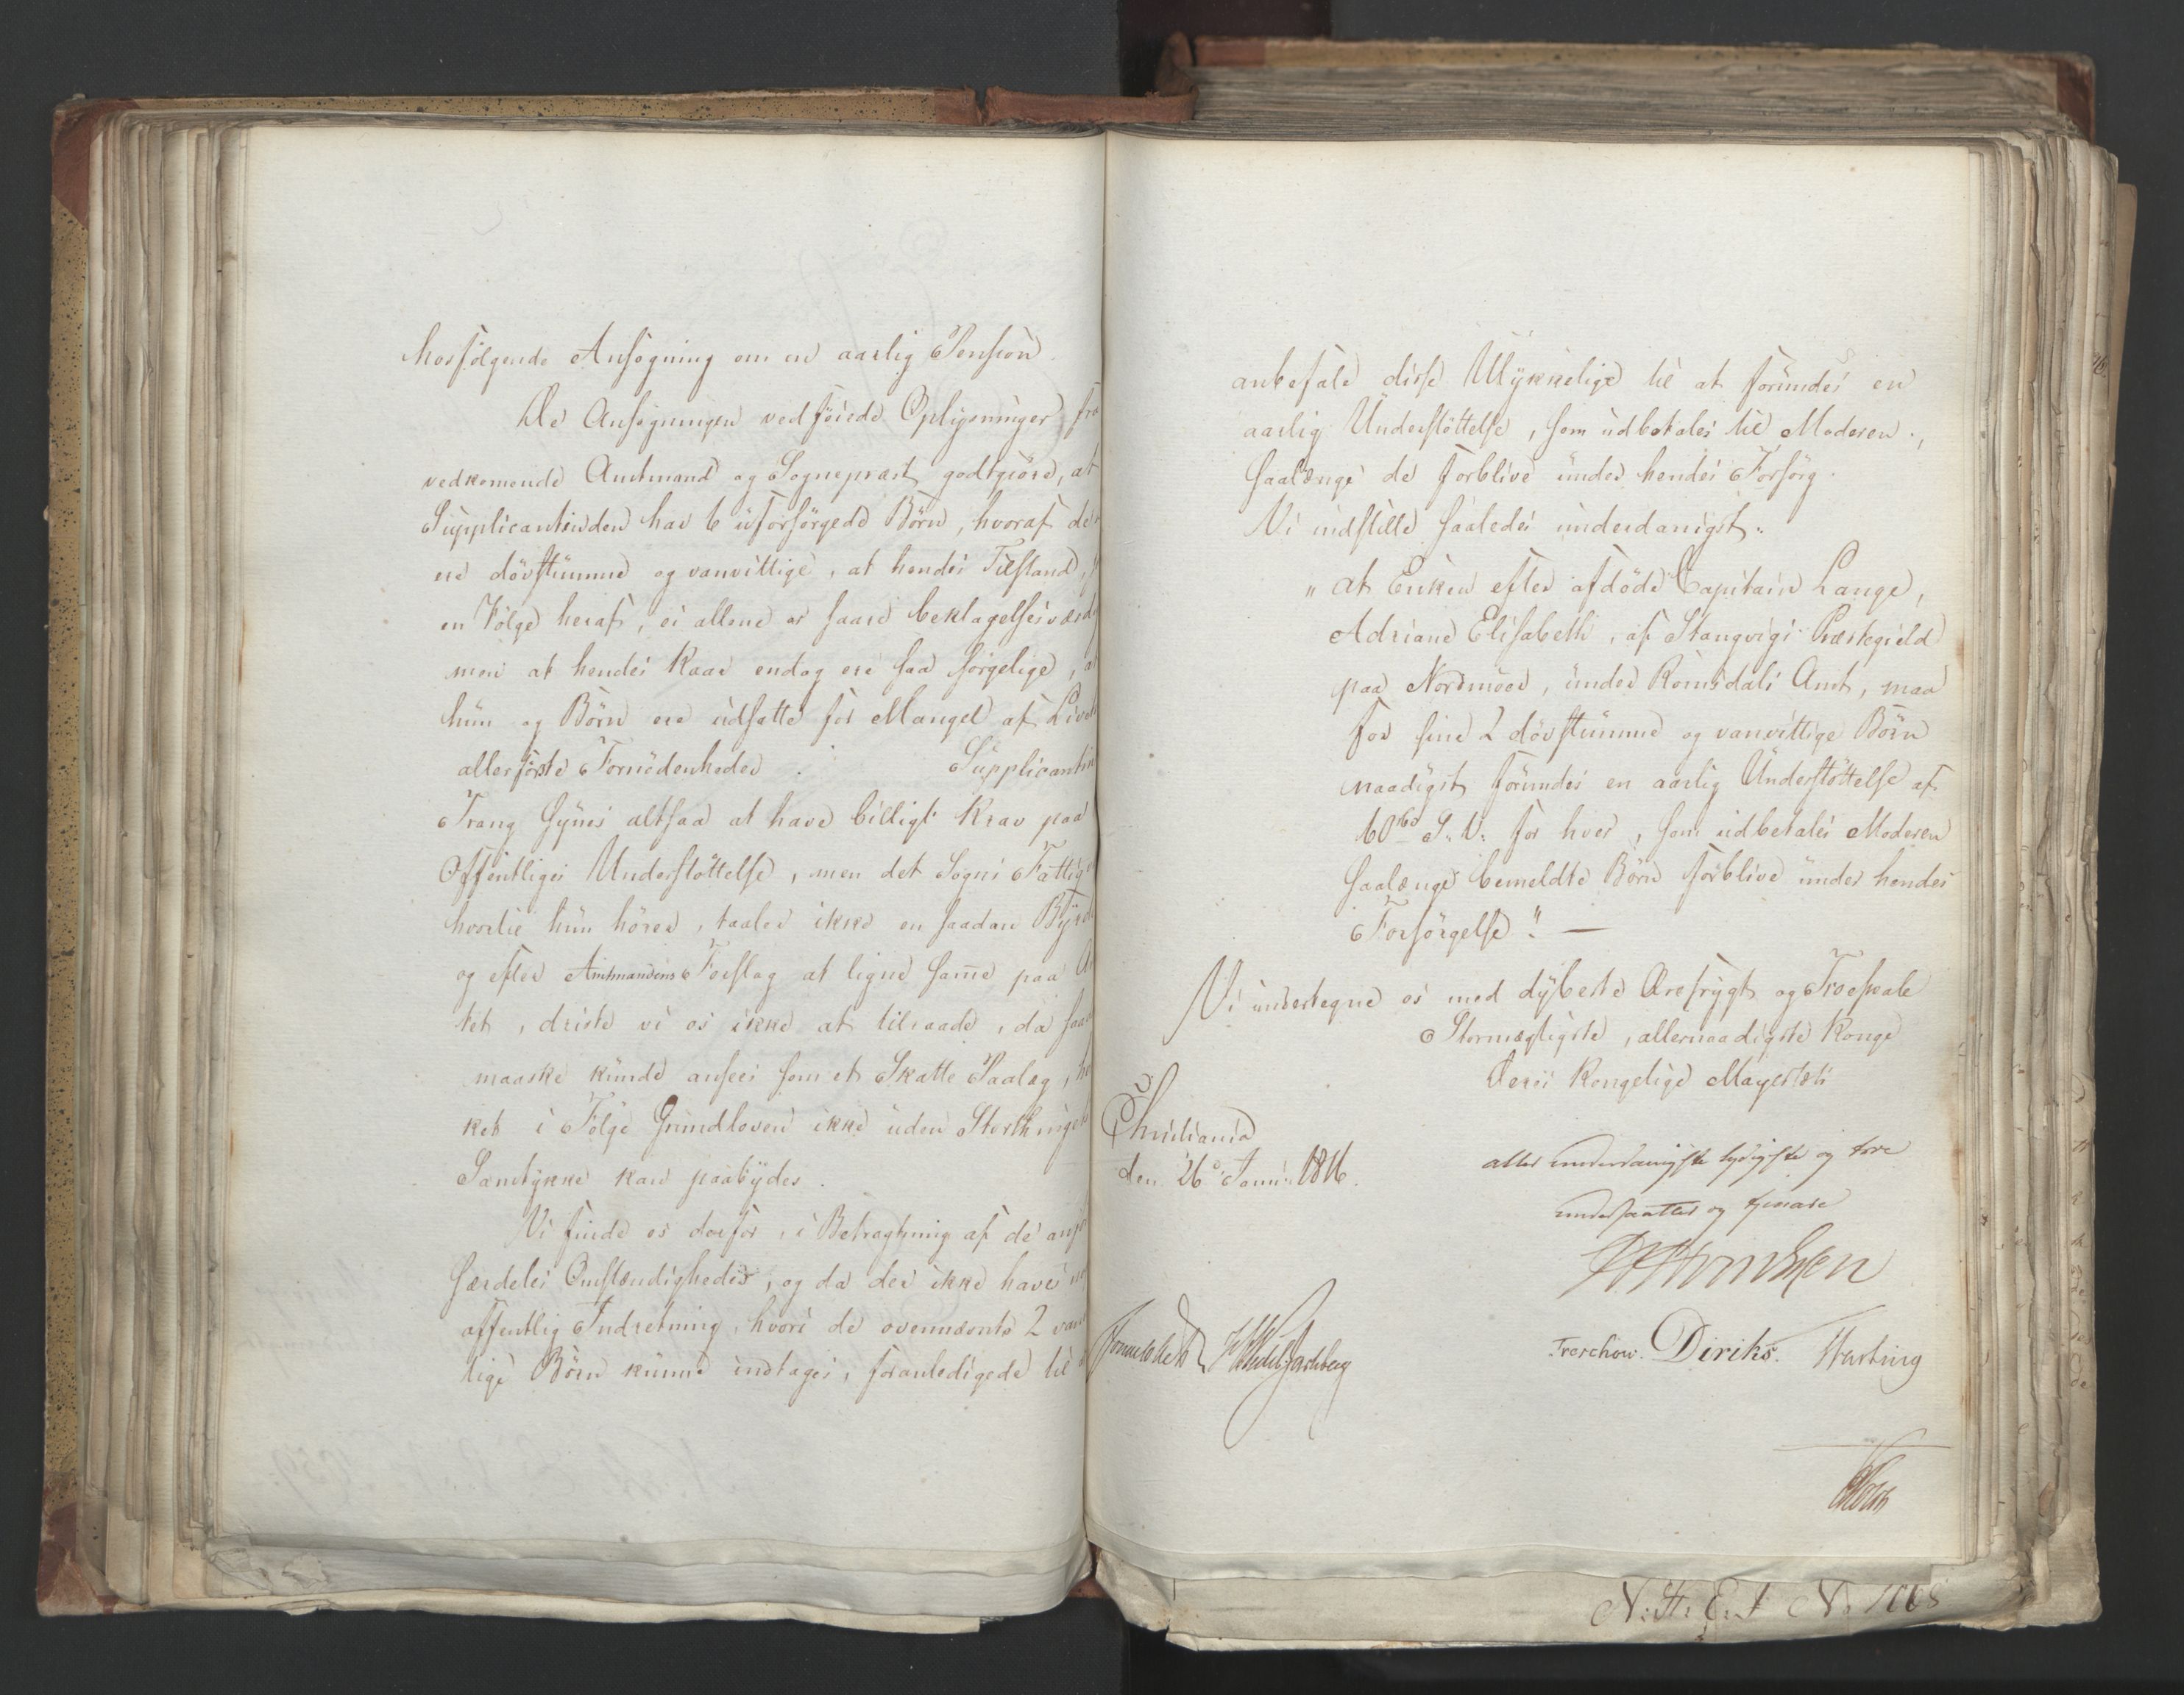 hosfølgende Ansøgning om en aarlig Pension.
De Ansøgningen vedføiede Oplysninger fra
vedkomende Amtmand og Sognepræst godtgiøre, at
Supplicantinden har 6 uforsørgede Børn, hvoraf de
ere døvstumme og vanvittige, at hendes Tilstand,
en Følge heraf, ei allene er saare beklagelsesværdig
men at hendes Kaar endog ere saa sørgelige, at
hun og Børn ere udsatte for Mangel af Livets
allerførste Fornødenheder. Supplicantin
Trang synes altsaa at have billigt Krav paa
Offentliges Understøttelse, men det Sogns Fattig
hvortil hun hører, taaler ikke en saadan Byrde
og efter Amtmandens Forslag at ligne same paa
tet, driste vi os ikke at tilraade, da saa
maaske kunde ansees som et Skatte Paalæg,
ket i Følge Grundloven ikke uden Storthingets
Samtykke kan paabydes.
Vi finde os derfor, i Betragtning af de anf
særdeles Omstændigheder, og da der ikke haves
offentlig Indretning, hvori de ovennævnte 2 van
tige Børn kunne indtages, foranledigede til
anbefale disse Ulykkelige til at forundes en
aarlig Understøttelse, som udbetales til Moderen,
saalænge de forblive under hendes Forsørg.
Vi indstille saaledes underdanigst:
"at Enken efter afdøde Capitain Lange,
Adriane Elisabeth, af Stangvigs Præstegield
paa Nordmøer, under Romsdals Amt, maa
for sine 2 døvstumme og vanvittige Børn
naadigst forundes en aarlig Understøttelse af
60 rbd S. V. for hver, som udbetales Moderen
saalænge bemeldte Børn forblive under hendes
Forsørgelse." —
Vi undertegne os med dybeste Ærefrygt og Troeskab
Stormægtigste, allernaadigste Konge
Deres Kongelige Mayestæts
Christiania
den 26 Janu: 1816.
aller underdanigste lydigste og troe
undersaatter og tjenere
M Sommerfeldt Wedel Jarlsberg
Treschow. Diriks. Hertzberg
N: St: E: J No 1065